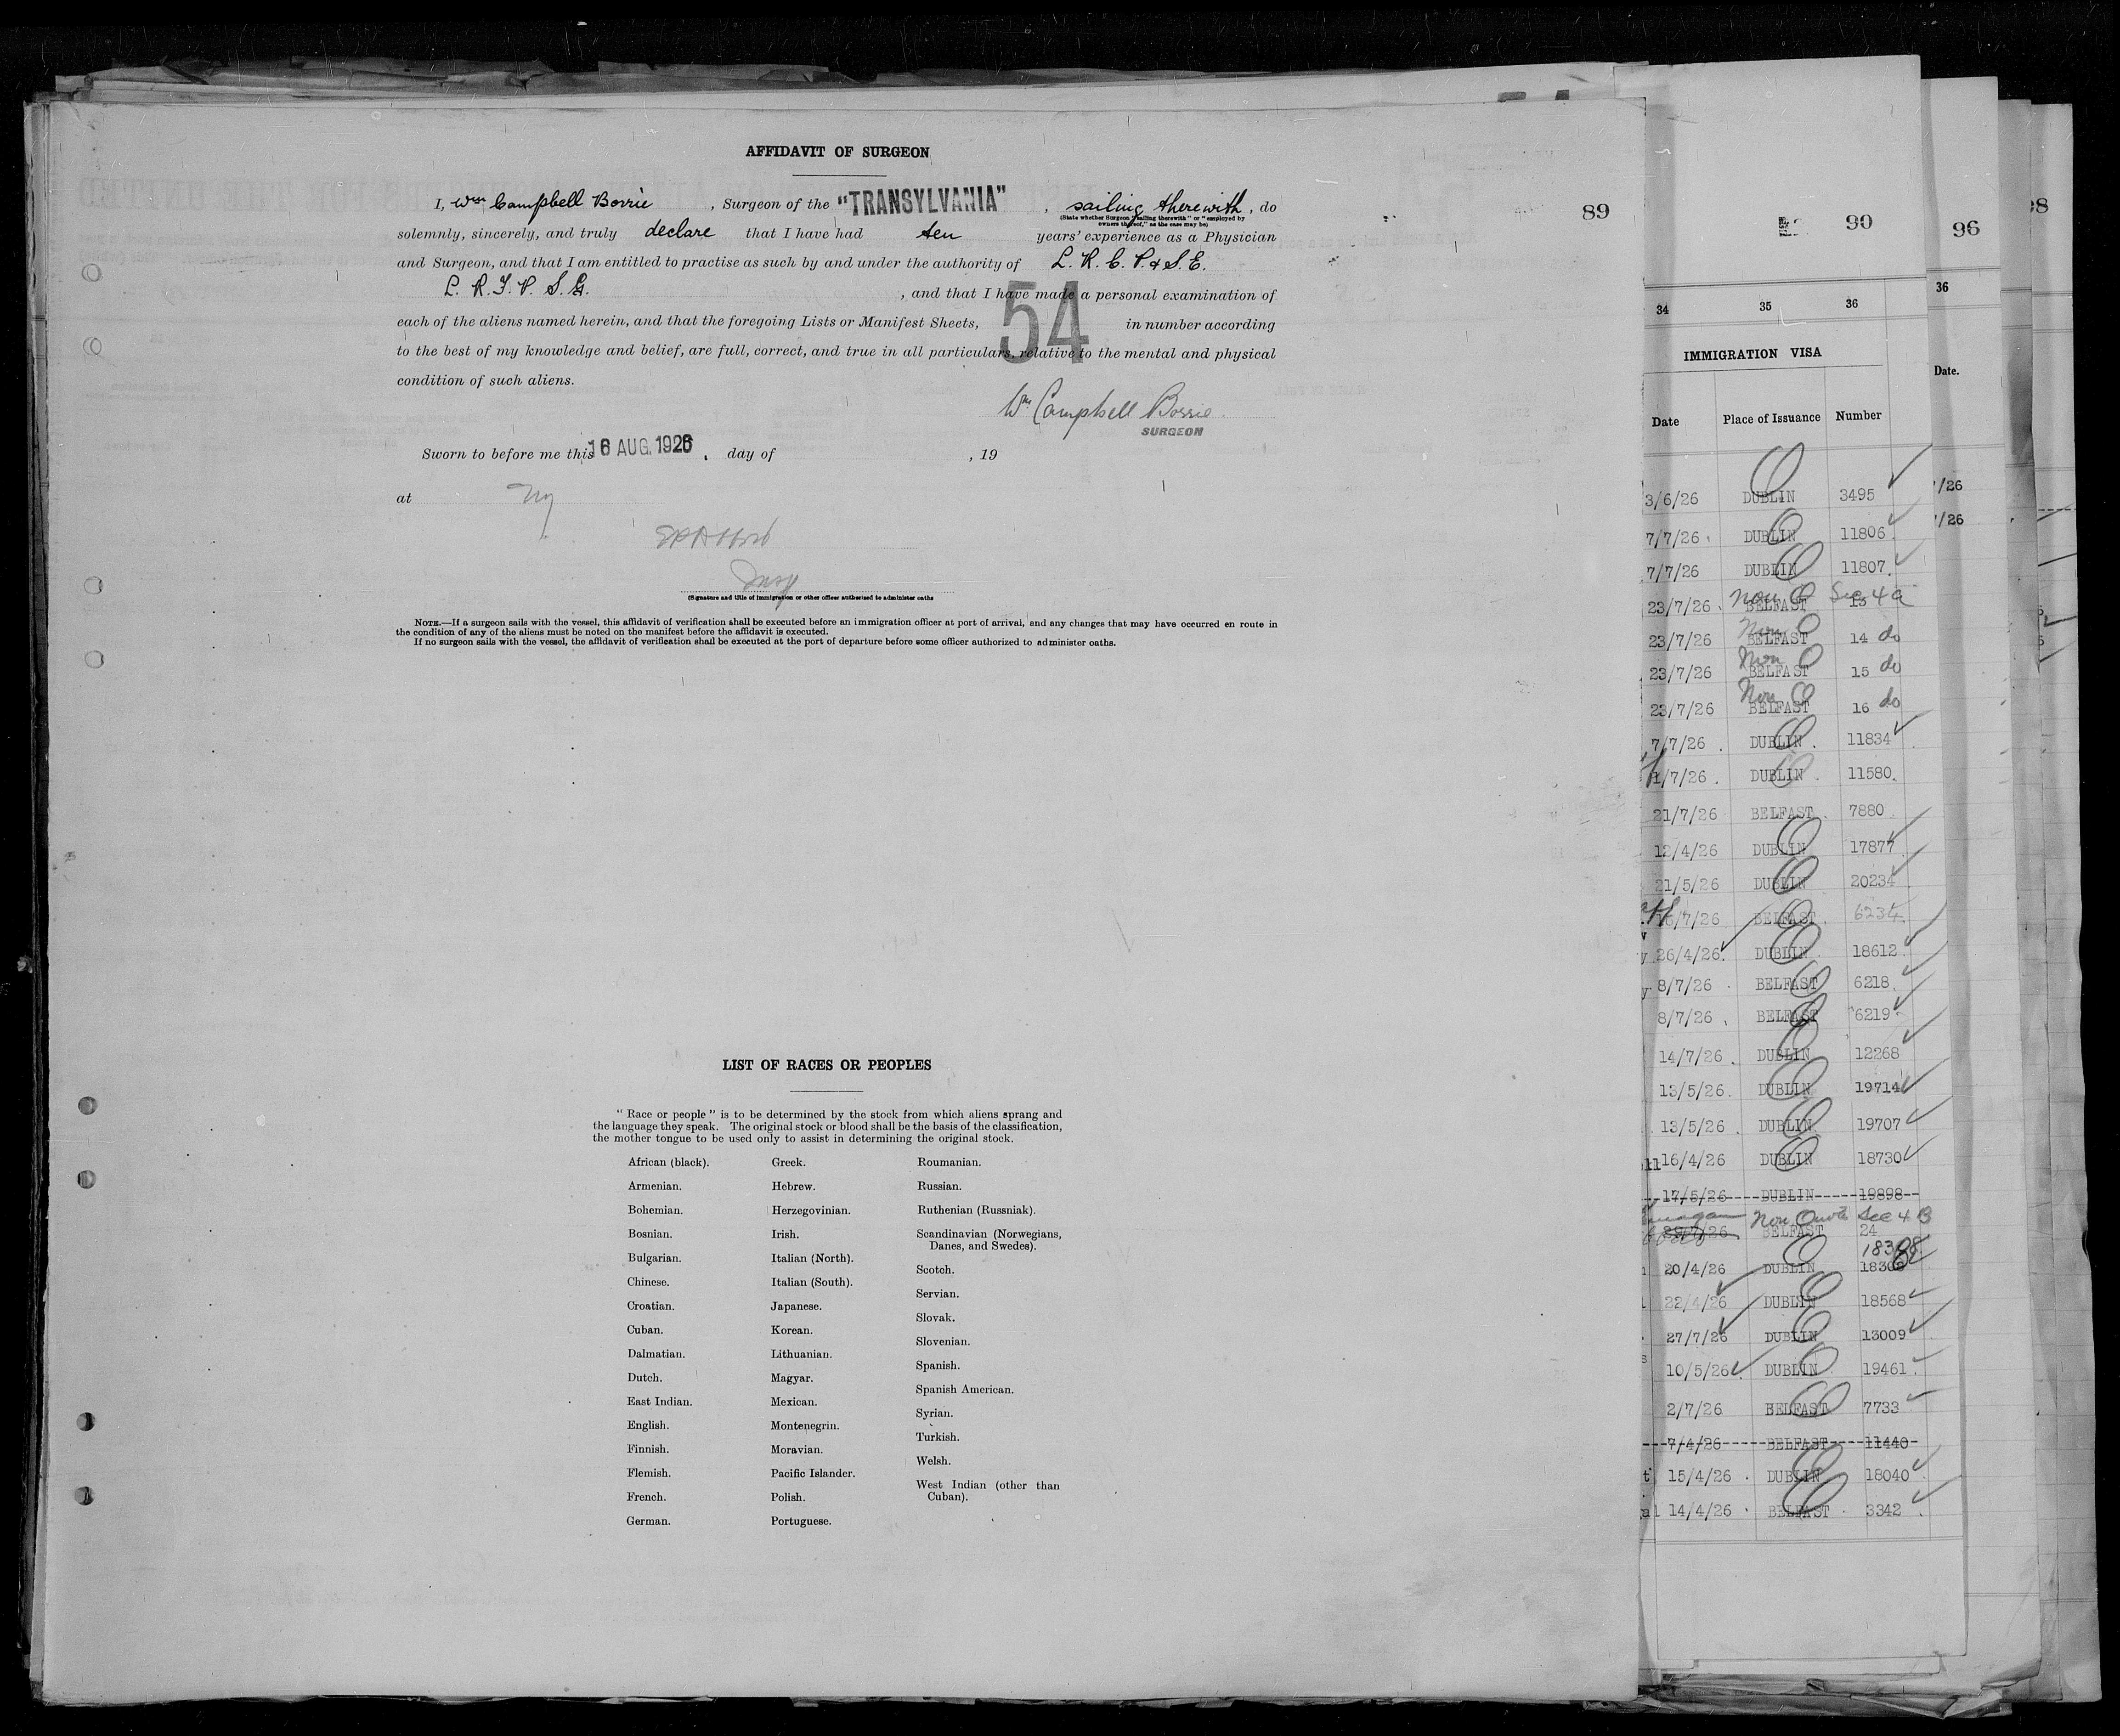 AFFIDAVIT OF SURGEON
I, Wm Campbell Borrie, Surgeon of the "TRANSYLVANIA", sailing therewith, do
(State whether Surgeon "sailing therewith" or "employed by
owners thereof," as the case may be)
89
solemnly, sincerely, and truly declare that I have had ten years' experience as a Physician
and Surgeon, and that I am entitled to practise as such by and under the authority of L. R. C. P. & S. E.
L. R. F. P. S. G. , and that I have made a personal examination of
each of the aliens named herein, and that the foregoing Lists or Manifest Sheets, 54 in number according
to the best of my knowledge and belief, are full, correct, and true in all particulars, relative to the mental and physical
condition of such aliens.
Wm Campbell Borrie
SURGEON
Sworn to before me this 16 AUG. 1926, day of , 19
at Ny
Insp
(Signature and title of immigration or other officer authorized to administer oaths
NOTE.—If a surgeon sails with the vessel, this affidavit of verification shall be executed before an immigration officer at port of arrival, and any changes that may have occurred en route in
the condition of any of the aliens must be noted on the manifest before the affidavit is executed.
If no surgeon sails with the vessel, the affidavit of verification shall be executed at the port of departure before some officer authorized to administer oaths.
LIST OF RACES OR PEOPLES
"Race or people" is to be determined by the stock from which aliens sprang and
the language they speak. The original stock or blood shall be the basis of the classification,
the mother tongue to be used only to assist in determining the original stock.
African (black).
Armenian.
Bohemian.
Bosnian.
Bulgarian.
Chinese.
Croatian.
Cuban.
Dalmatian.
Dutch.
East Indian.
English.
Finnish.
Flemish.
French.
German.
Greek.
Hebrew.
Herzegovinian.
Irish.
Italian (North).
Italian (South).
Japanese.
Korean.
Lithuanian.
Magyar.
Mexican.
Montenegrin.
Moravian.
Pacific Islander.
Polish.
Portuguese.
Roumanian.
Russian.
Ruthenian (Russniak).
Scandinavian (Norwegians,
Danes, and Swedes).
Scotch.
Servian.
Slovak.
Slovenian.
Spanish.
Spanish American.
Syrian.
Turkish.
Welsh.
West Indian (other than
Cuban).
90
34 35 36
IMMIGRATION VISA
Date Place of Issuance Number
3/6/26 DUBLIN 3495
7/7/26 DUBLIN 11806
7/7/26 DUBLIN 11807
23/7/26 Non Q BELFAST 13 Sec 4 a
23/7/26 Non Q BELFAST 14 do
23/7/26 Non Q BELFAST 15 do
23/7/26 Non Q BELFAST 16 do
7/7/26 DUBLIN 11834
1/7/26 DUBLIN 11580
21/7/26 BELFAST 7880
12/4/26 DUBLIN 17877
21/5/26 DUBLIN 20234
16/7/26 BELFAST 6234
26/4/26 DUBLIN 18612
8/7/26 BELFAST 6218
8/7/26 BELFAST 6219
14/7/26 DUBLIN 12268
13/5/26 DUBLIN 19714
13/5/26 DUBLIN 19707
16/4/26 DUBLIN 18730
17/5/26 DUBLIN 19898
Non Quota Sec 4 B
BELFAST 24
18308
20/4/26 DUBLIN
22/4/26 DUBLIN 18568
27/7/26 DUBLIN 13009
10/5/26 DUBLIN 19461
2/7/26 BELFAST 7733
7/4/26 BELFAST 11440
15/4/26 DUBLIN 18040
14/4/26 BELFAST 3342
96
36
Date.
/26
/26
98